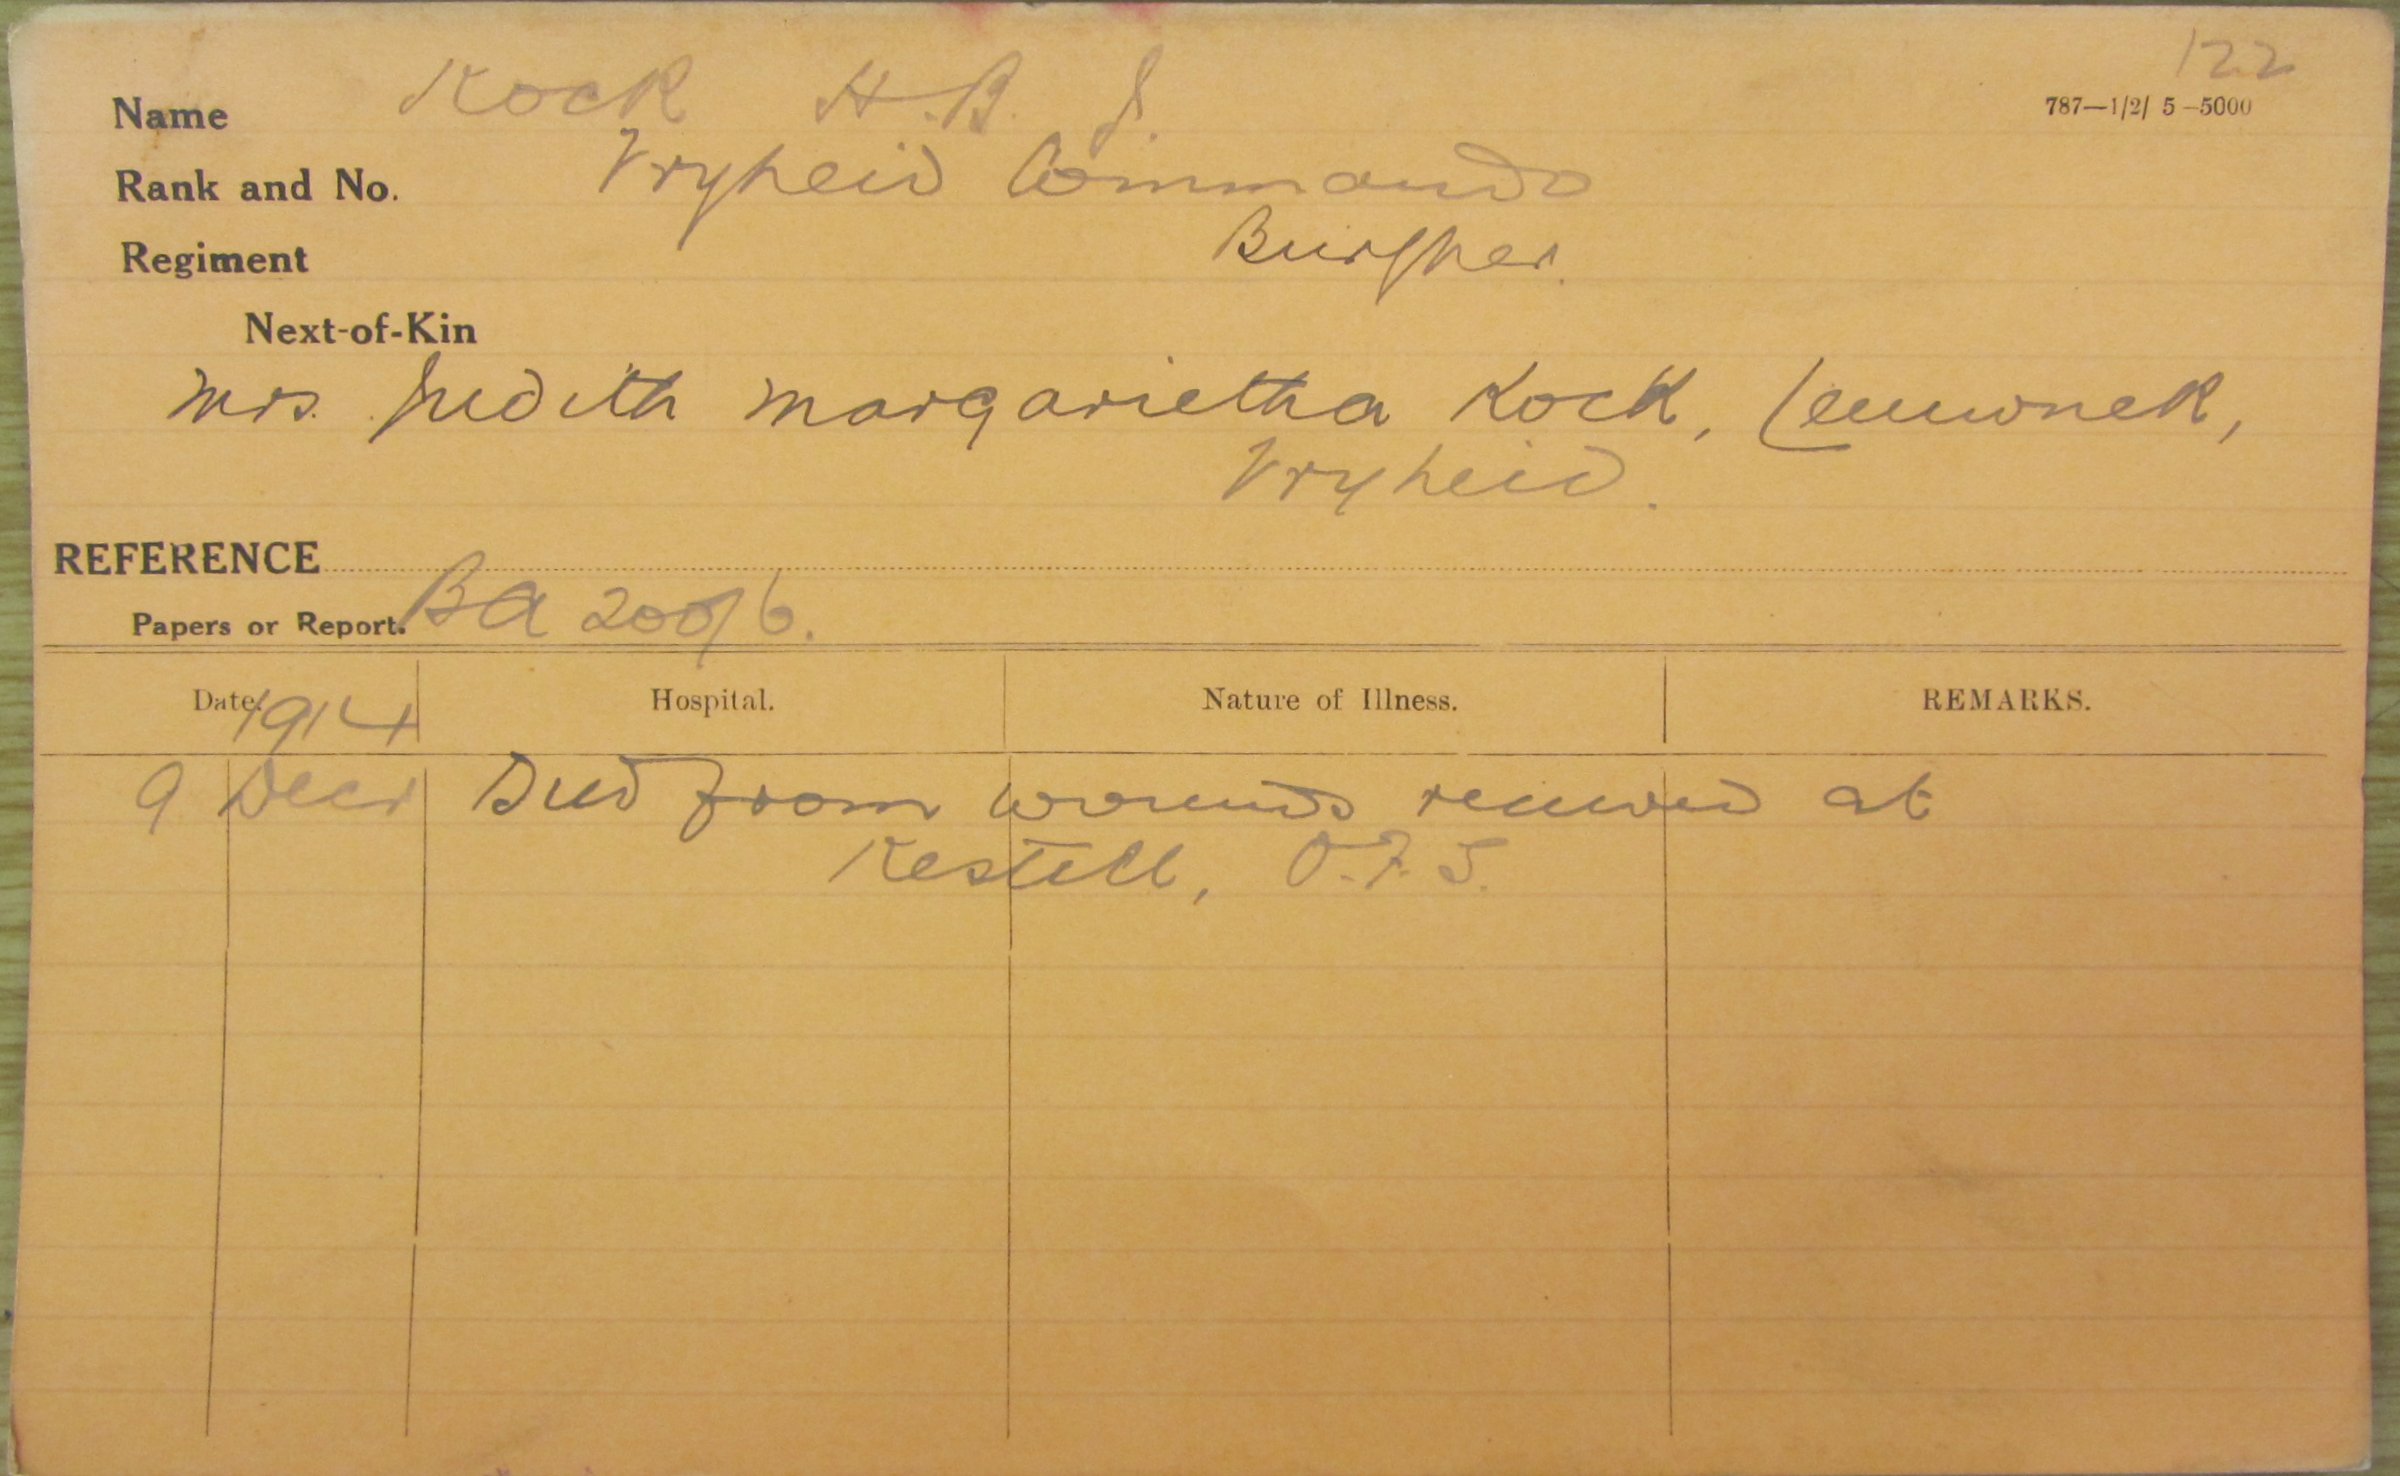 122
Name Kock H.B. J.
787—1/2/ 5—5000
Rank and No. Vryheid Commando
Regiment Burgher.
Next-of-Kin
Mrs. Judith Margarietha Kock, Leeuwnek,
Vryheid.
REFERENCE
Papers or Report. BA
Date. 1914 Hospital. Nature of Illness. REMARKS.
9 Decr Died from wounds received at
Kestell, O.F.S.